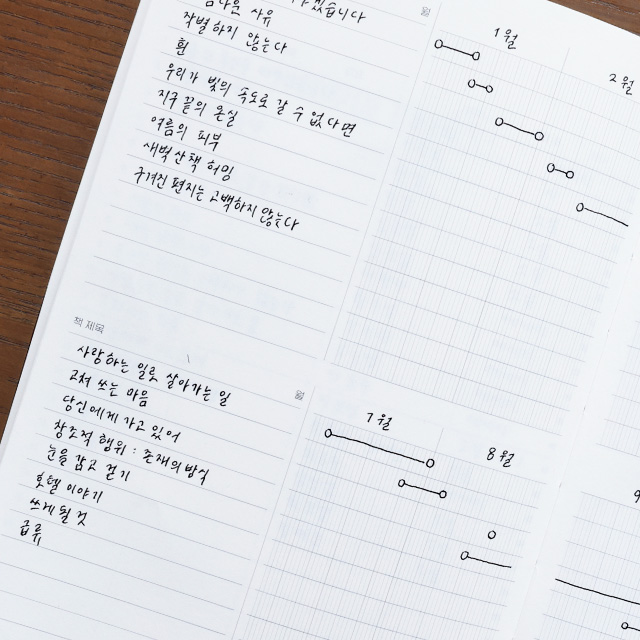 겠습니다
사유
작별하지 않는다
흰
우리가 빛의 속도로 갈 수 없다면
지구 끝의 온실
여름의 피부
새벽 산책 허밍
구겨진 편지는 고백하지 않는다
월
1월
2월
책 제목
사랑하는 일로 살아가는 일
고쳐 쓰는 마음
당신에게 가고 있어
창조적 행위 : 존재의 방식
눈을 감고 걷기
호텔 이야기
쓰게 될 것
급류
월
7월
8월
9